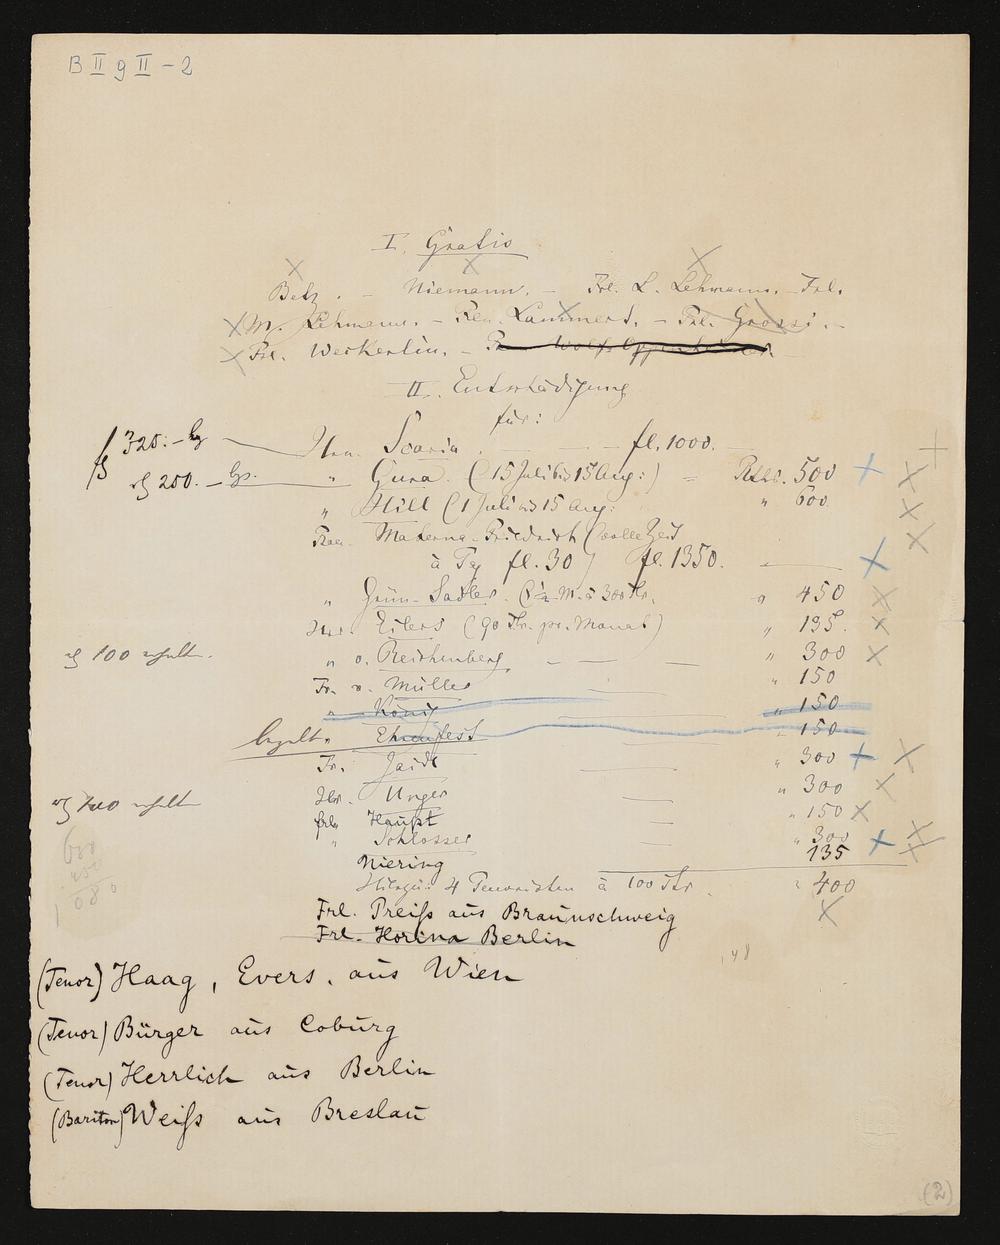 B II g II - 2
I. Gratis
Betz. - Niemann. - Frl. L. Lehmann. - Frl.
M. Lehmann. - Frl. Lammert. - Frl. Grossi. -
Frl. Weckerlin. -
II. Entschädigung
für:
320.- Hrn. Scaria. - - fl. 1000. -
200. - " Gura. (15 Juli bis 15 Aug:) = Rthr. 500
" Hill (1 Juli bis 15 Aug: " 600.
Frau Materna-Friedrich (volle Zeit
à Tag fl. 30) fl. 1350.
" Grün-Sadler. (1½ M. à 300 Thr. " 450
Hrr. Eilers (90 Thr. pr. Monat) " 135.
100 erhalten. " v. Reichenberg - - - " 300
Fr. v. Müller " 150
" König " 150
bezahlt " Ehrenfest " 150
Fr. Jaide " 300
Hr. Unger " 300
100 erhalten Frl. Haupt " 150
" Schlosser " 300
Niering 135
Hierzu: 4 Tenoristen à 100 Thr. " 400
Frl. Preiß aus Braunschweig
Frl. Horina Berlin
(Tenor) Haag, Evers. aus Wien
(Tenor) Bürger aus Coburg
(Tenor) Herrlich aus Berlin
(Bariton) Weiß aus Breslau
(2)